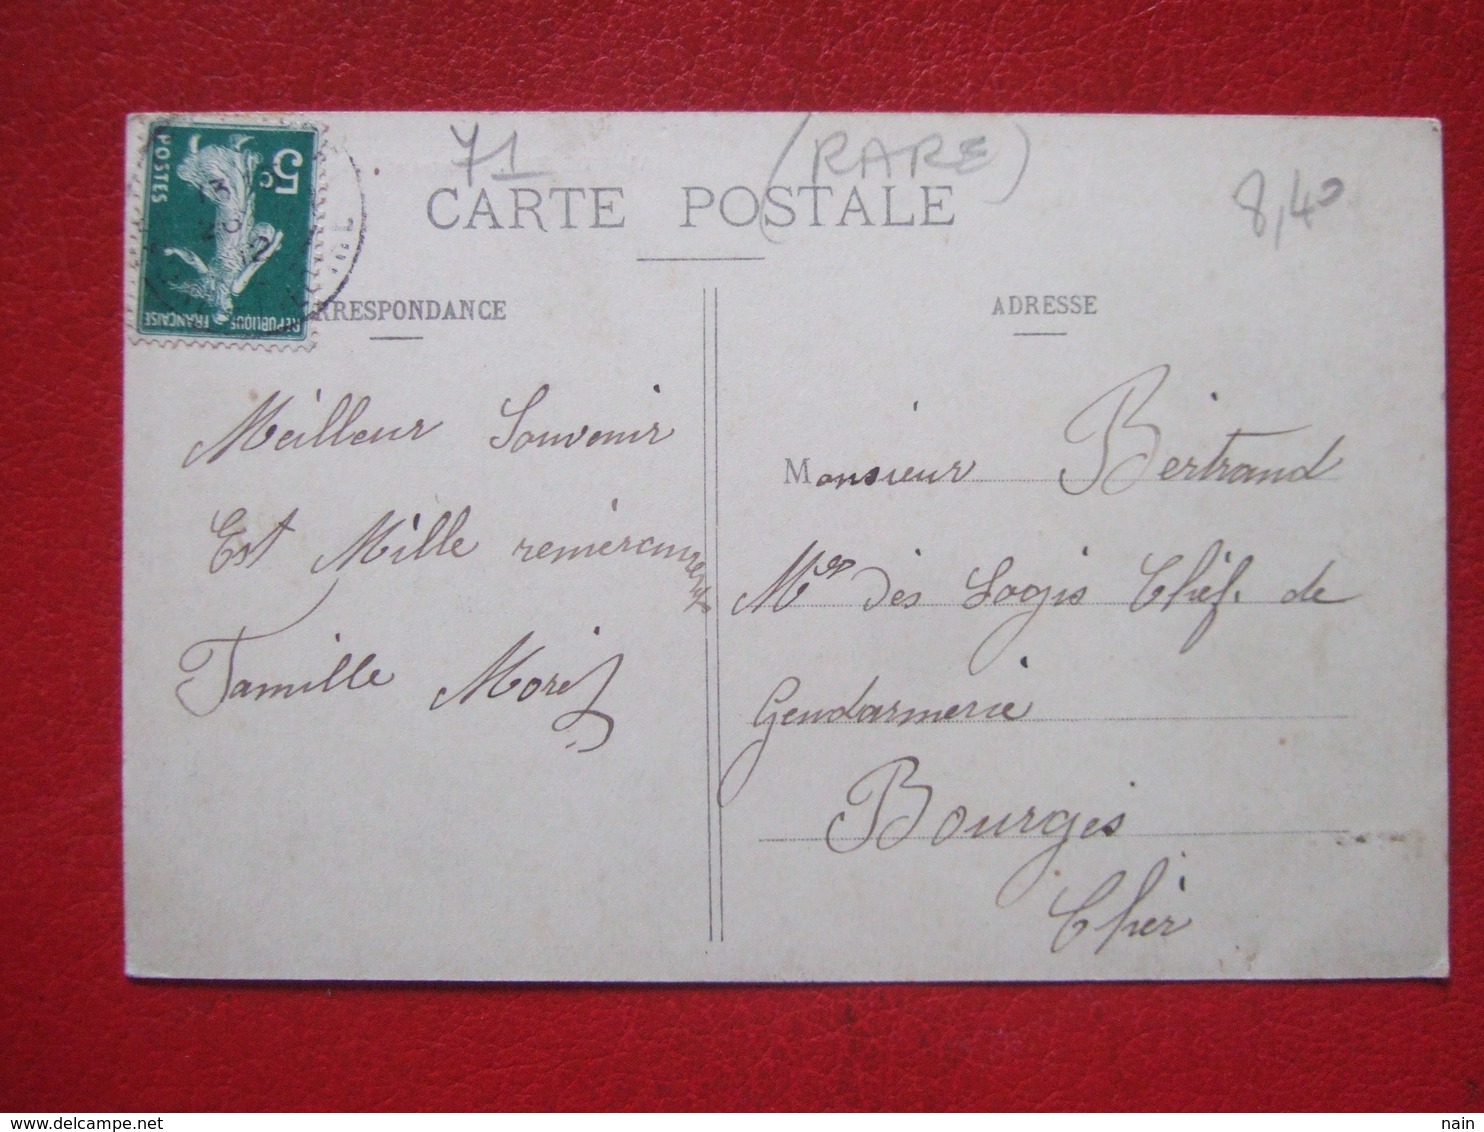 71 (RARE) 8,40
CARTE POSTALE
5c
POSTES
REPUBLIQUE
FRANÇAISE
13
12
RRESPONDANCE
ADRESSE
Meilleur Souvenir
Est Mille
Famille
Monsieur Bertrand
des Logis Chef. de
Gendarmerie
Bourges
Cher
delcampe.net
nain